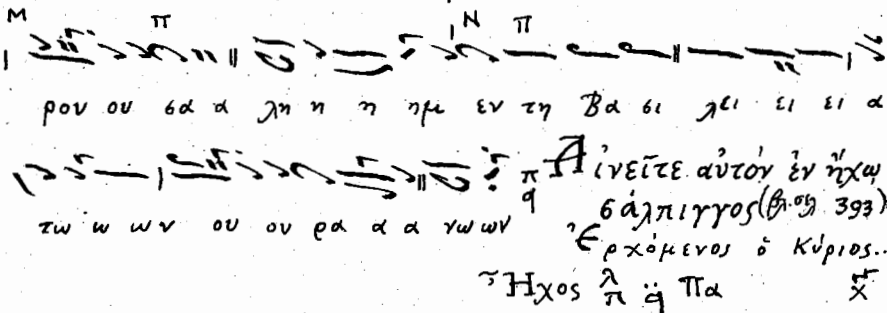 Μ π Ν π
ρου ου σα α λη η η ημ εν τη βα σι λει ει ει α
τω ω ων ου ου ρα α α νω ων
Αἰνεῖτε αὐτόν ἐν ἤχῳ
σάλπιγγος (βλ. σελ 393)
Ἐρχόμενος ὁ Κύριος..
Ἦχος λ π q Πα χ